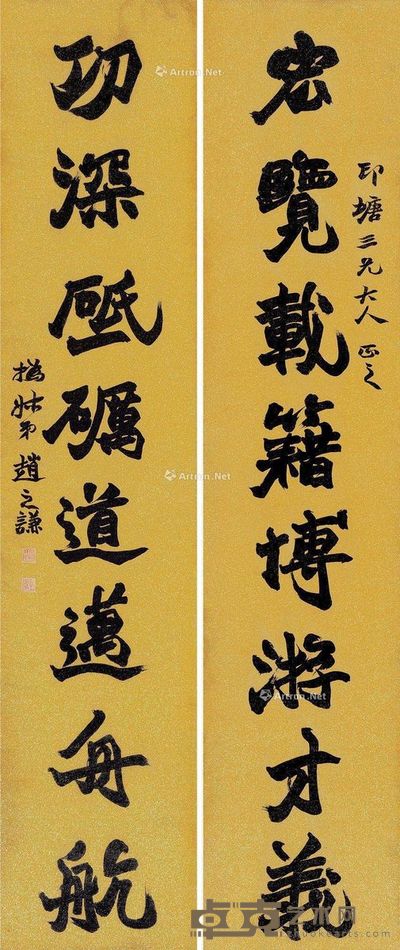 印塘三兄大人正之
宏覽載籍博游才義
功深砥礪道邁舟航
撝叔弟趙之謙
Artron.Net
Artron.Net
Artron.Net
卓克艺术网